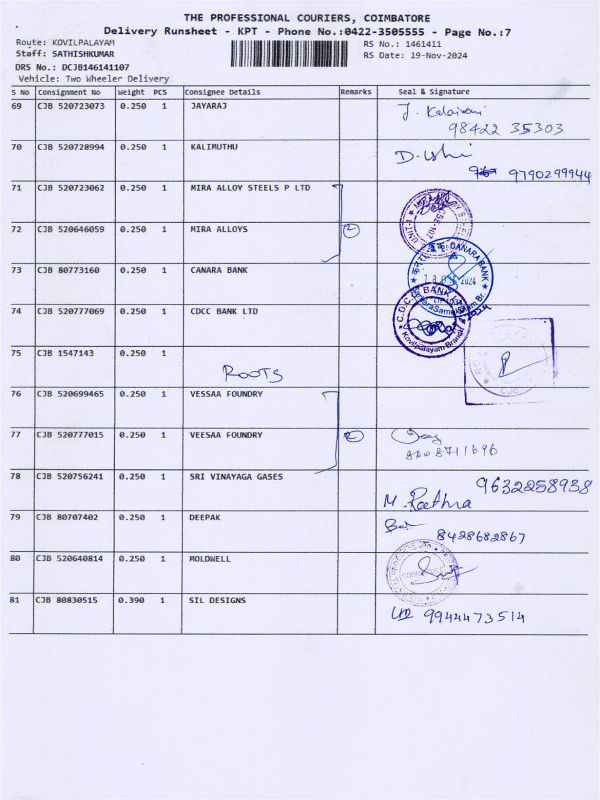 THE PROFESSIONAL COURIERS, COIMBATORE
Delivery Runsheet - KPT - Phone No.:0422-3505555 - Page No.:7
Route: KOVILPALAYAM RS No.: 1461411
Staff: SATHISHKUMAR RS Date: 19-Nov-2024
DRS No.: DCJB146141107
Vehicle: Two Wheeler Delivery
S No Consignment No Weight PCS Consignee Details Remarks Seal & Signature
69 CJB 520723073 0.250 1 JAYARAJ J. Kalaivani
98422 35303
70 CJB 520728994 0.250 1 KALIMUTHU D. Ushi
9790299944
71 CJB 520723062 0.250 1 MIRA ALLOY STEELS P LTD
72 CJB 520646059 0.250 1 MIRA ALLOYS 2
73 CJB 80773160 0.250 1 CANARA BANK CANARA BANK
74 CJB 520777069 0.250 1 CDCC BANK LTD C.D.C.C. BANK
Kovilpalayam Branch
75 CJB 1547143 0.250 1
ROOTS
76 CJB 520699465 0.250 1 VESSAA FOUNDRY
77 CJB 520777015 0.250 1 VEESAA FOUNDRY 2
78 CJB 520756241 0.250 1 SRI VINAYAGA GASES 9632258938
M. Rathna
79 CJB 80707402 0.250 1 DEEPAK
8428682867
80 CJB 520640814 0.250 1 MOLDWELL
81 CJB 80830515 0.390 1 SIL DESIGNS 9944473514